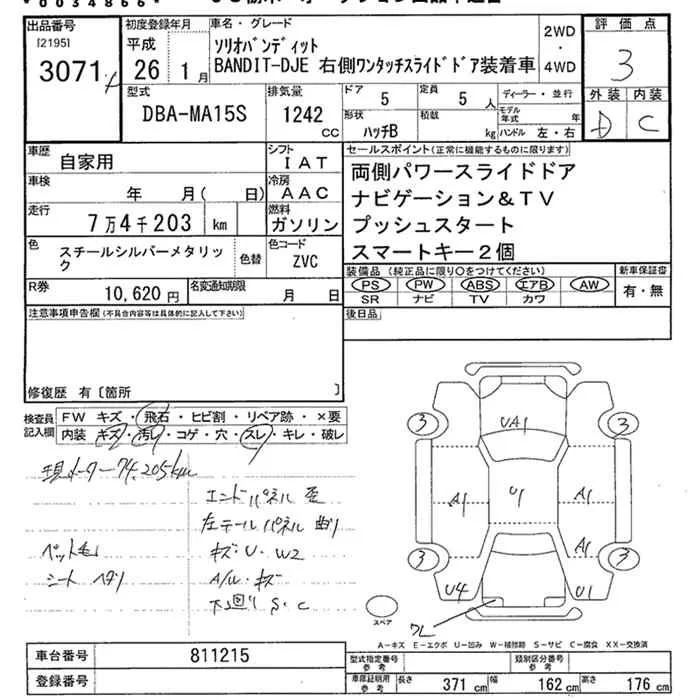 * 0034866 *
出品番号
[2195]
3071
初度登録年月
平成
26 1月
車名・グレード
ソリオバンディット
BANDIT-DJE 右側ワンタッチスライドドア装着車
2WD
・
4WD
評価点
3
外装 内装
D C
型式
DBA-MA15S
排気量
1242
CC
ドア
5
定員
5 人
形状
ハッチB
積載
kg
ディーラー・並行
モデル年式 年
ハンドル 左・右
車歴
自家用
シフト
IAT
車検
年 月( 日)
冷房
AAC
走行
7万4千203 km
燃料
ガソリン
色
スチールシルバーメタリック
色替
色コード
ZVC
R券
10,620 円
名変通知期限
月 日
セールスポイント(正常に機能するものに限ります)
両側パワースライドドア
ナビゲーション&TV
プッシュスタート
スマートキー2個
装備品(純正品に限り○をつけてください)
PS PW ABS エアB AW
SR ナビ TV カワ
新車保証書
有・無
後日品
注意事項申告欄(不具合内容等は具体的に記入して下さい)
修復歴 有〔箇所 〕
検査員記入欄
FW キズ・飛石・ヒビ割・リペア跡・×要
内装 キズ・汚れ・コゲ・穴・スレ・キレ・破レ
現メーター74,205km
エンドパネル 歪
左テールパネル 曲り
ペット毛
キズ・U・W2
シート ヘタリ
A/W・キズ
下回り S・C
3 3
UA1
A1 U1 A1
A1
3 3
U4 U1
ワレ
スペア
A-キズ E-エクボ U-凹み W-補修跡 S-サビ C-腐食 XX-交換済
車台番号
811215
登録番号
型式指定番号
参考
類別区分番号
参考
車庫証明用
参考
長さ 371 cm 幅 162 cm 高さ 176 cm